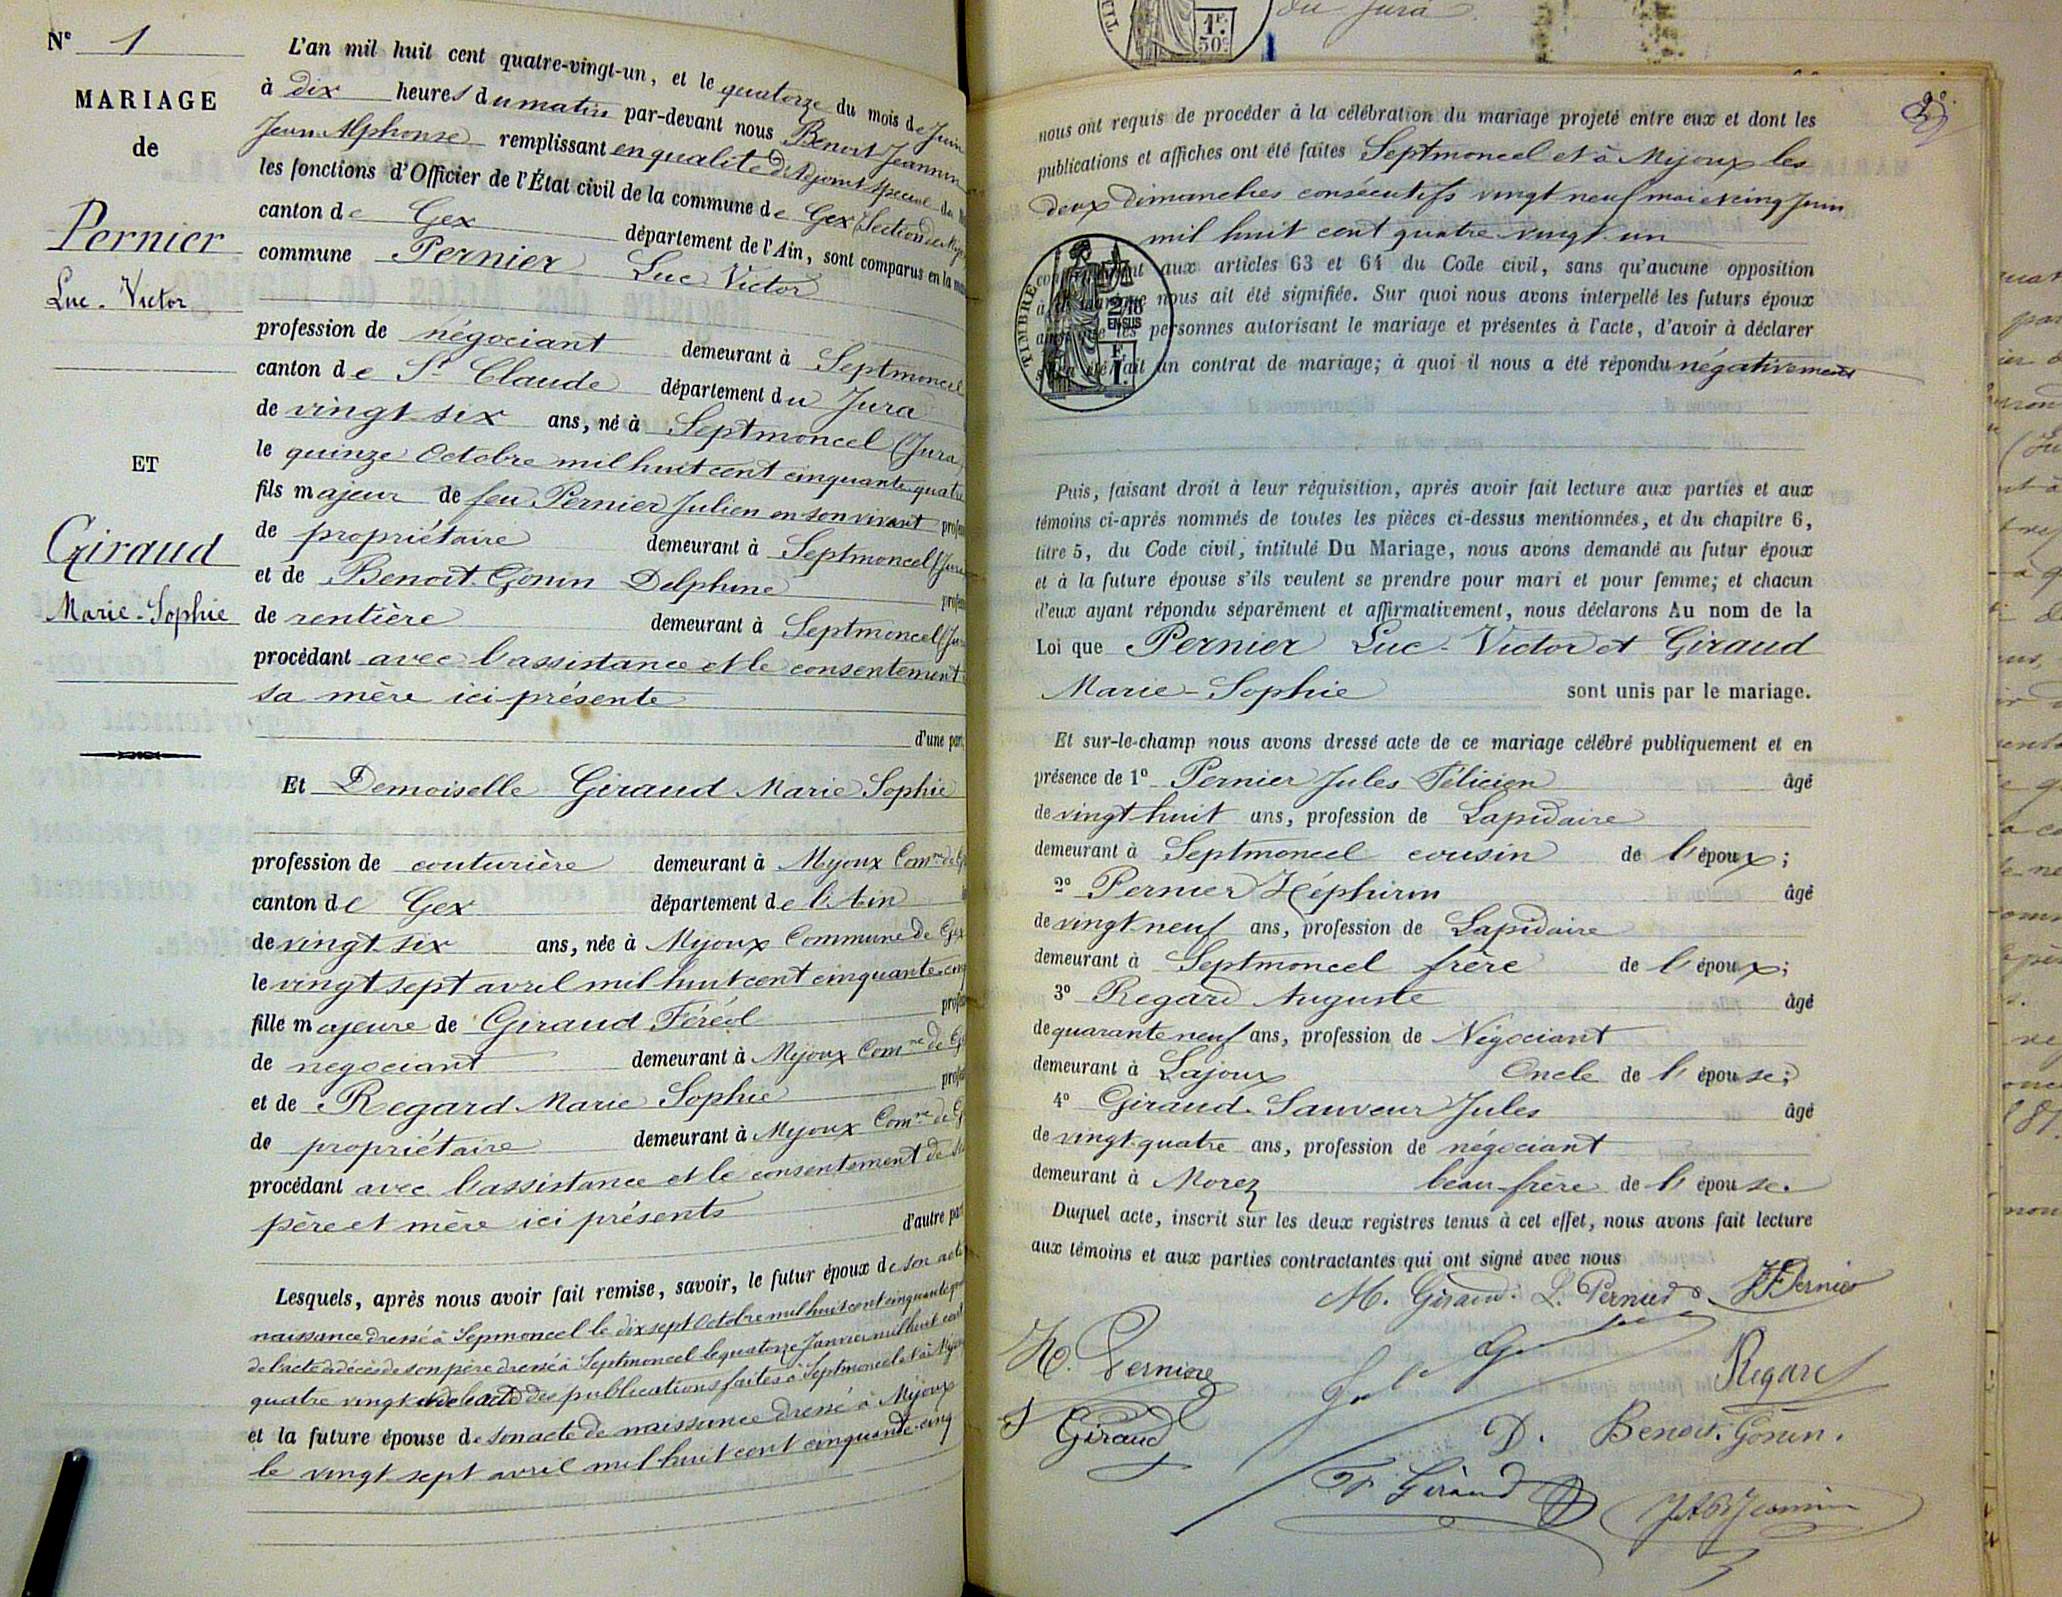 N° 1
MARIAGE
de
Pernier
Luc-Victor
ET
Giraud
Marie-Sophie
L'an mil huit cent quatre-vingt-un, et le quatorze du mois de Juin
à dix heures du matin par-devant nous Benoit-Jeannin
Jean Alphonse remplissant en qualité d'Adjoint spécial
les fonctions d'Officier de l'État civil de la commune de Gex (Section de
canton de Gex département de l'Ain, sont comparus en la
commune Pernier Luc Victor
profession de négociant demeurant à Septmoncel
canton de St Claude département du Jura
de vingt six ans, né à Septmoncel (Jura
le quinze Octobre mil huit cent cinquante quatre
fils majeur de feu Pernier Julien en son vivant
de propriétaire demeurant à Septmoncel
et de Benoit-Gonin Delphine
de rentière demeurant à Septmoncel
procédant avec l'assistance et le consentement
sa mère ici présente
d'une part
Et Demoiselle Giraud Marie Sophie
profession de couturière demeurant à Mijoux Comne de
canton de Gex département de l'Ain
de vingt six ans, née à Mijoux Commune de Gex
le vingt sept avril mil huit cent cinquante cinq
fille majeure de Giraud Féréol
de negociant demeurant à Mijoux Comne de
et de Regard Marie Sophie
de propriétaire demeurant à Mijoux Comne de
procédant avec l'assistance et le consentement de
père et mère ici présents
d'autre part
Lesquels, après nous avoir fait remise, savoir, le futur époux de son acte
naissance dressé à Sepmoncel le dix sept Octobre mil huit cent cinquante
de l'acte de décès de son père dressé à Septmoncel le quatorze Janvier mil huit cent
quatre vingt des publications faites à Septmoncel et à
et la future épouse de son acte de naissance dressé à Mijoux
le vingt sept avril mil huit cent cinquante cinq
du Jura
1F.
50c
nous ont requis de procéder à la célébration du mariage projeté entre eux et dont les
publications et affiches ont été faites Septmoncel et à Mijoux les
deux Dimanches consécutifs vingt neuf mai et cinq Juin
mil huit cent quatre vingt un
aux articles 63 et 64 du Code civil, sans qu'aucune opposition
nous ait été signifiée. Sur quoi nous avons interpellé les futurs époux
personnes autorisant le mariage et présentes à l'acte, d'avoir à déclarer
fait un contrat de mariage; à quoi il nous a été répondu négativement
TIMBRE
2/10
EN SUS
1F.
Puis, faisant droit à leur réquisition, après avoir fait lecture aux parties et aux
témoins ci-après nommés de toutes les pièces ci-dessus mentionnées, et du chapitre 6,
titre 5, du Code civil, intitulé Du Mariage, nous avons demandé au futur époux
et à la future épouse s'ils veulent se prendre pour mari et pour femme; et chacun
d'eux ayant répondu séparément et affirmativement, nous déclarons Au nom de la
Loi que Pernier Luc-Victor et Giraud
Marie-Sophie sont unis par le mariage.
Et sur-le-champ nous avons dressé acte de ce mariage célébré publiquement et en
présence de 1° Pernier Jules Félicien âgé
de vingt huit ans, profession de Lapidaire
demeurant à Septmoncel cousin de l'époux;
2° Pernier Zéphirin âgé
de vingt neuf ans, profession de Lapidaire
demeurant à Septmoncel frère de l'époux;
3° Regard Auguste âgé
de quarante neuf ans, profession de Négociant
demeurant à Lajoux Oncle de l'épouse;
4° Giraud Sauveur Jules âgé
de vingt quatre ans, profession de négociant
demeurant à Morez beau-frère de l'épouse.
Duquel acte, inscrit sur les deux registres tenus à cet effet, nous avons fait lecture
aux témoins et aux parties contractantes qui ont signé avec nous
M. Giraud. L. Pernier JF Pernier
Pernier
Regard
Giraud
D. Benoit-Gonin.
Fr Giraud
JABJeannin